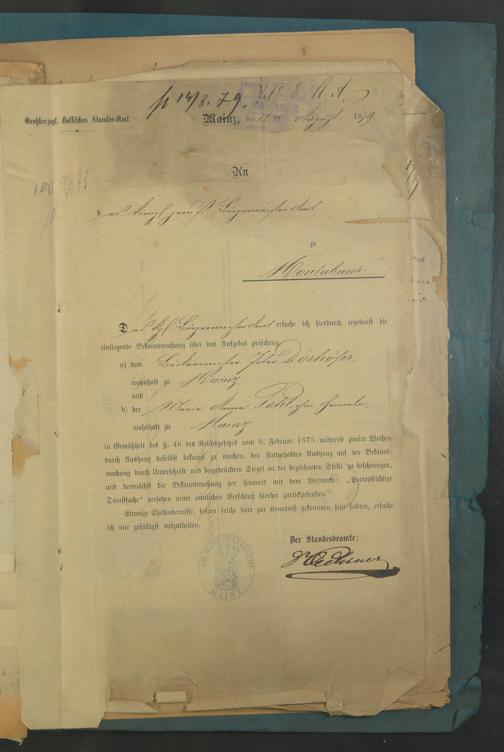 p 14/8. 79.
Großherzogl. Hessisches Standes-Amt.
Mainz, den 12 ten August 1879
An
Das Königl. preuß. Bürgermeister Amt
zu
Montabaur.
Das Kgl. Bürgermeister Amt ersuche ich hierdurch ergebenst die
einliegende Bekanntmachung über das Aufgebot zwischen:
a) dem Bäckermeister Peter Dörhöfer,
wohnhaft zu Mainz
und
b) der Maria Anna Fehl, ohne Gewerbe,
wohnhaft zu Mainz
in Gemäßheit des §. 46 des Reichsgesetzes vom 6. Februar 1875 während zweier Wochen
durch Aushang daselbst bekannt zu machen, den stattgehabten Aushang auf der Bekannt-
machung durch Unterschrift und beigedrücktem Siegel an der bezeichneten Stelle zu bescheinigen,
und demnächst die Bekanntmachung per Couvert mit dem Vermerke: „Portopflichtige
Dienstsache" versehen unter amtlichen Verschluß hierher zurückzusenden.
Etwaige Ehehindernisse, sofern solche dort zur Kenntniß gekommen sein sollten, ersuche
ich mir gefälligst mitzutheilen.
Der Standesbeamte:
GR. HESS. STANDESAMT
MAINZ